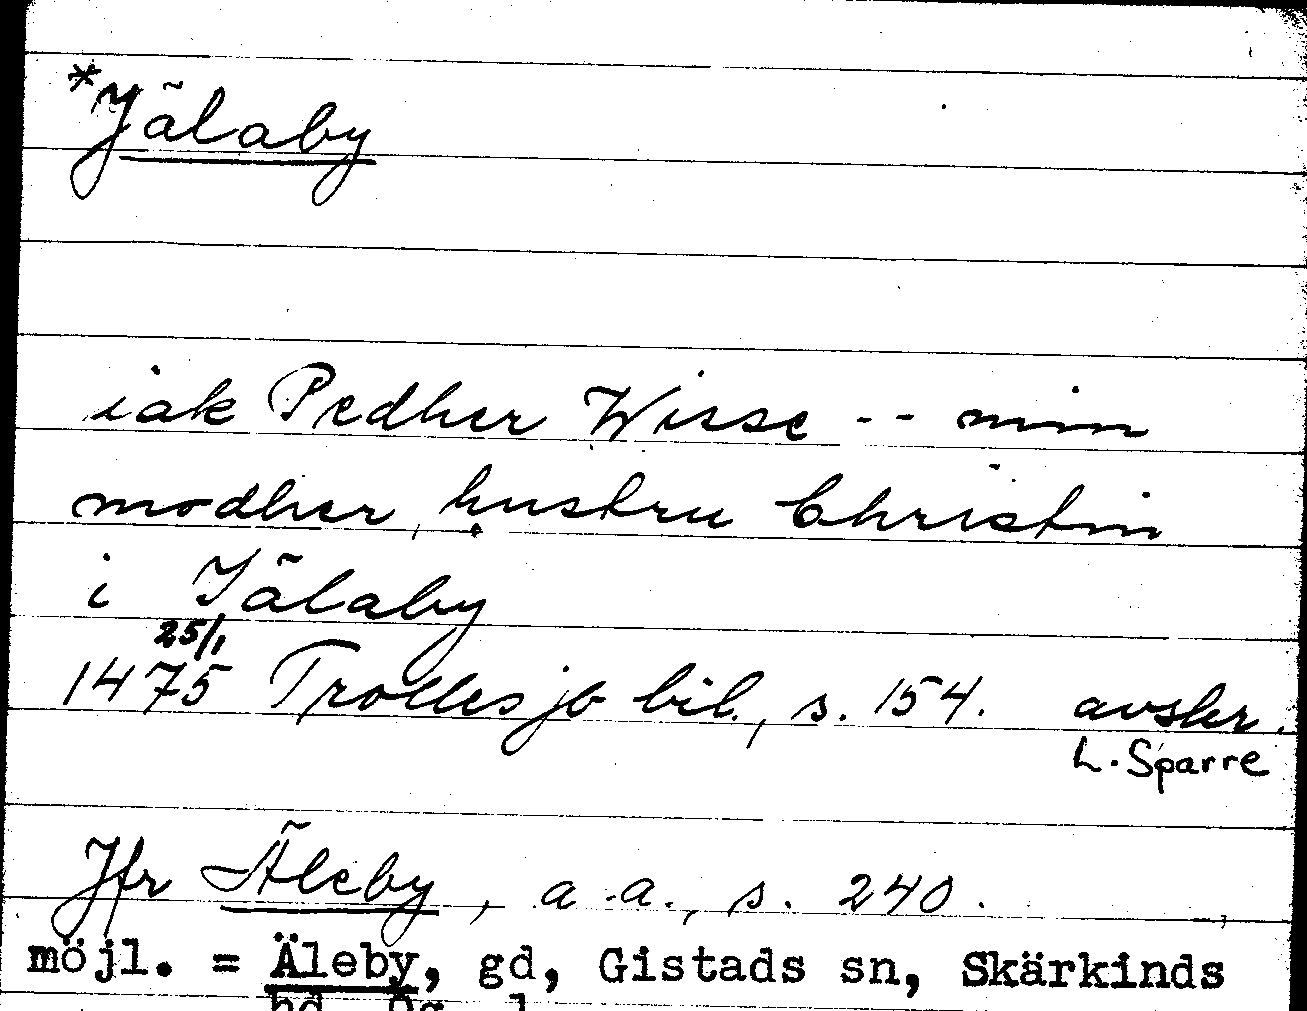 *Jälaby
iak Pedher Wisse -- min
modher, hustru Christin
i Jälaby
25/1
1475 Trolles jb bil., s. 154. avskr.
L. Sparre
Jfr Äleby, a.a., s. 240.
möjl. = Äleby, gd, Gistads sn, Skärkinds